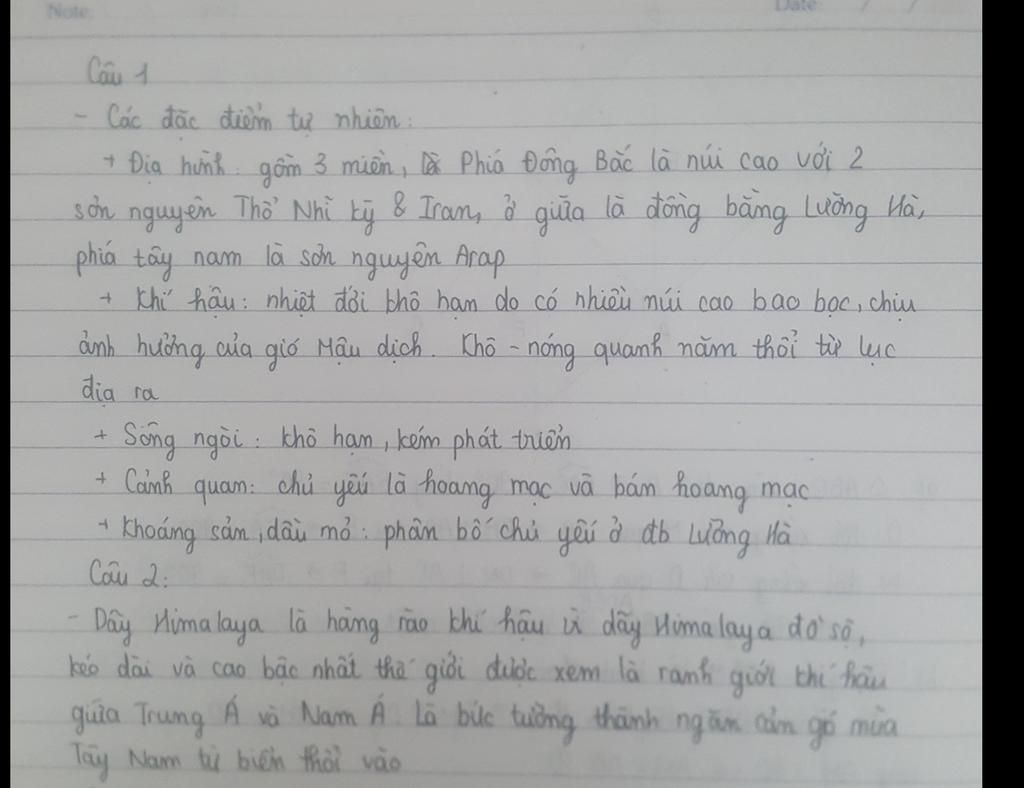 Note:
Date / /
Câu 1
- Các đặc điểm tự nhiên:
+ Địa hình: gồm 3 miền, Phiá Đông Bắc là núi cao với 2
sơn nguyên Thổ Nhĩ Kỳ & Iran, ở giữa là đồng bằng Lưỡng Hà,
phiá tây nam là sơn nguyên Arap
+ Khí hậu: nhiệt đới khô hạn do có nhiều núi cao bao bọc, chịu
ảnh hưởng của gió Mậu dịch. Khô - nóng quanh năm thổi từ lục
địa ra
+ Sông ngòi: khô hạn, kém phát triển
+ Cảnh quan: chủ yếu là hoang mạc và bán hoang mạc
+ Khoáng sản, dầu mỏ: phân bố chủ yếu ở đb Lưỡng Hà
Câu 2:
- Dãy Himalaya là hàng rào khí hậu vì dãy Himalaya đồ sộ,
kéo dài và cao bậc nhất thế giới được xem là ranh giới khí hậu
giữa Trung Á và Nam Á. Là bức tường thành ngăn cản gó mùa
Tây Nam từ biển thổi vào